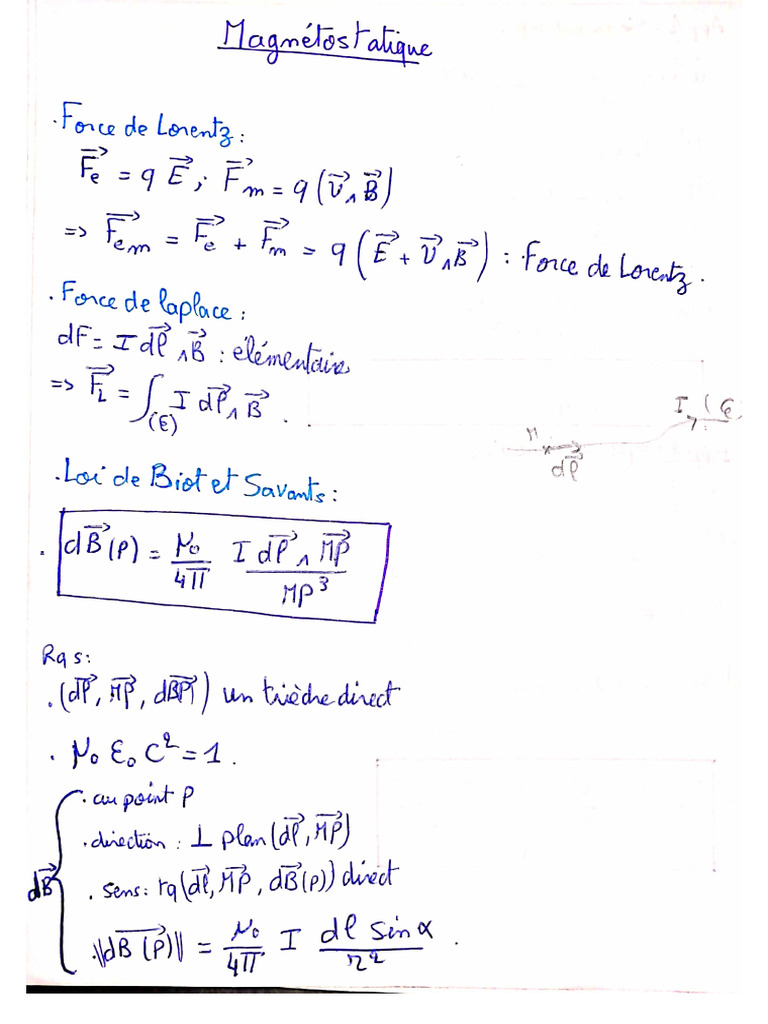 Magnétostatique
. Force de Lorentz :
F⃗e = q E⃗ ; F⃗m = q (V⃗ ∧ B⃗)
=> F⃗em = F⃗e + F⃗m = q (E⃗ + V⃗ ∧ B⃗) : Force de Lorentz.
. Force de laplace :
dF = I dl⃗ ∧ B⃗ : élémentaire
=> F⃗L = ∫(C) I dl⃗ ∧ B⃗ .
M I (C
dl⃗
. Loi de Biot et Savants :
. dB⃗(P) = μ₀/4π I dl⃗ ∧ MP⃗ / MP³
Rqs :
. (dl⃗, MP⃗, dB⃗(P)) un trièdre direct
. μ₀ ε₀ C² = 1 .
. au point P
. direction : ⊥ plan (dl⃗, MP⃗)
dB⃗ . sens : tq (dl⃗, MP⃗, dB⃗(P)) direct
. ||dB⃗(P)|| = μ₀/4π I dl sin α / r² .